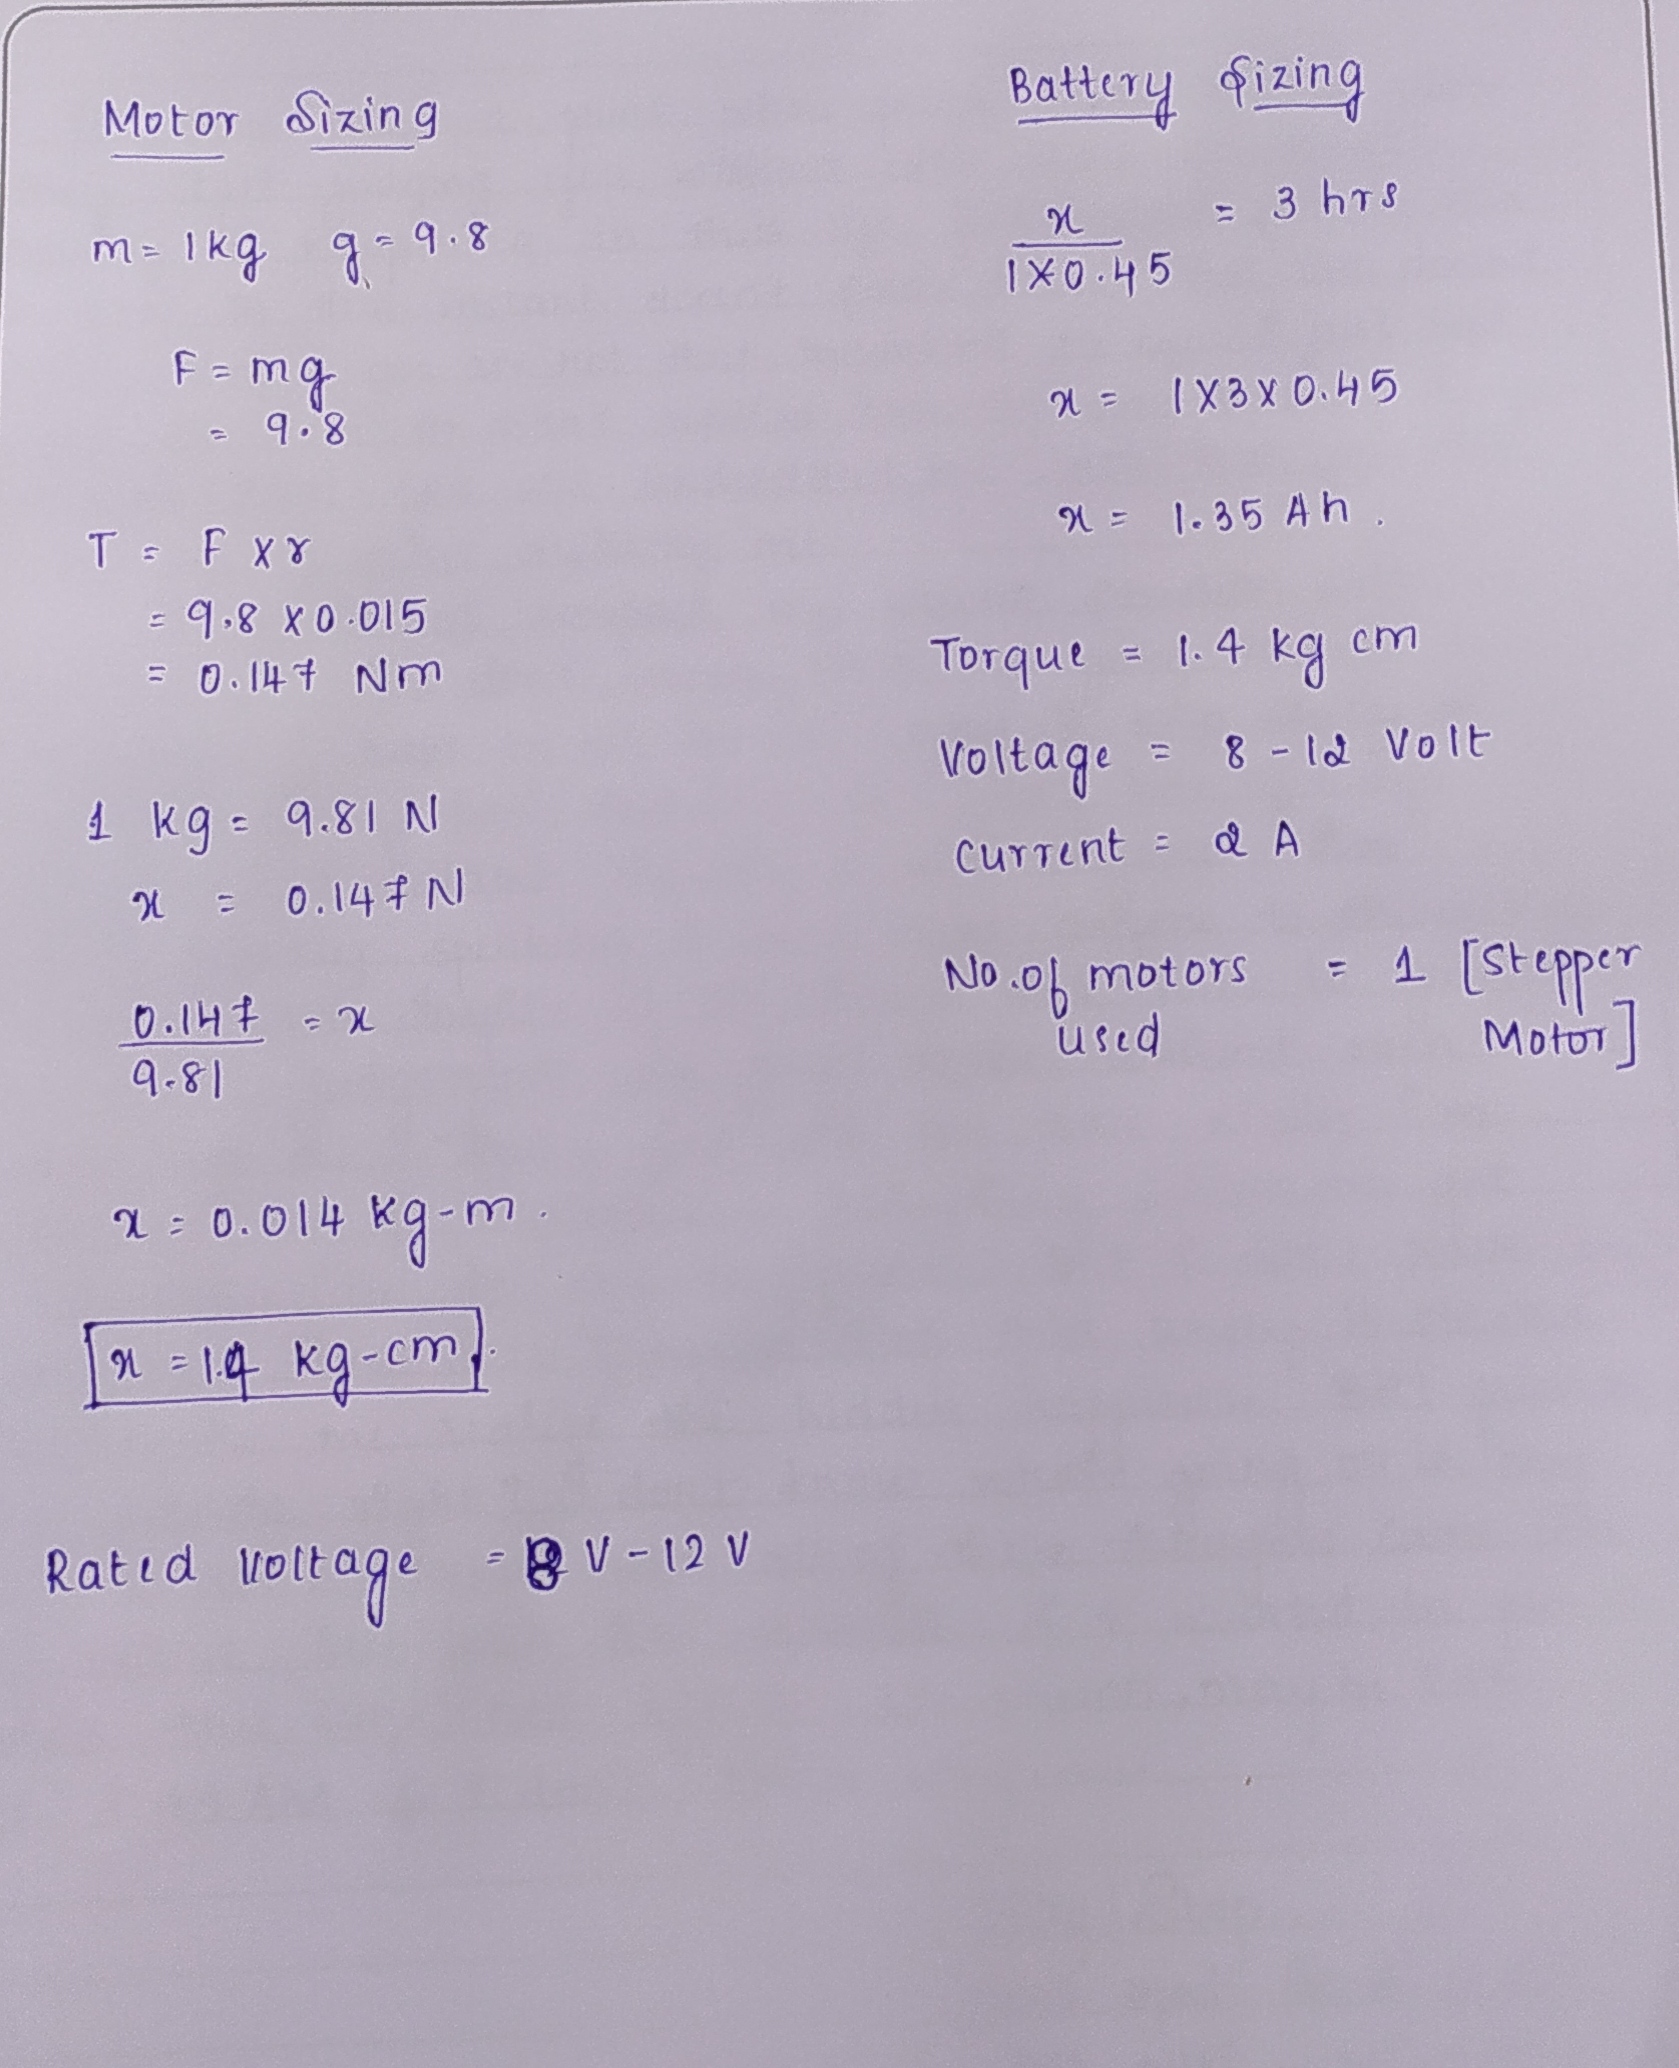 Motor Sizing
m = 1kg g = 9.8
F = mg
= 9.8
T = F x r
= 9.8 x 0.015
= 0.147 Nm
1 kg = 9.81 N
x = 0.147 N
0.147 = x
9.81
x = 0.014 kg-m.
x = 1.4 kg-cm.
Rated voltage = 8 V - 12 V
Battery Sizing
x = 3 hrs
1x0.45
x = 1x3x0.45
x = 1.35 Ah.
Torque = 1.4 kg cm
Voltage = 8 - 12 Volt
Current = 2 A
No.of motors = 1 [Stepper
used Motor]